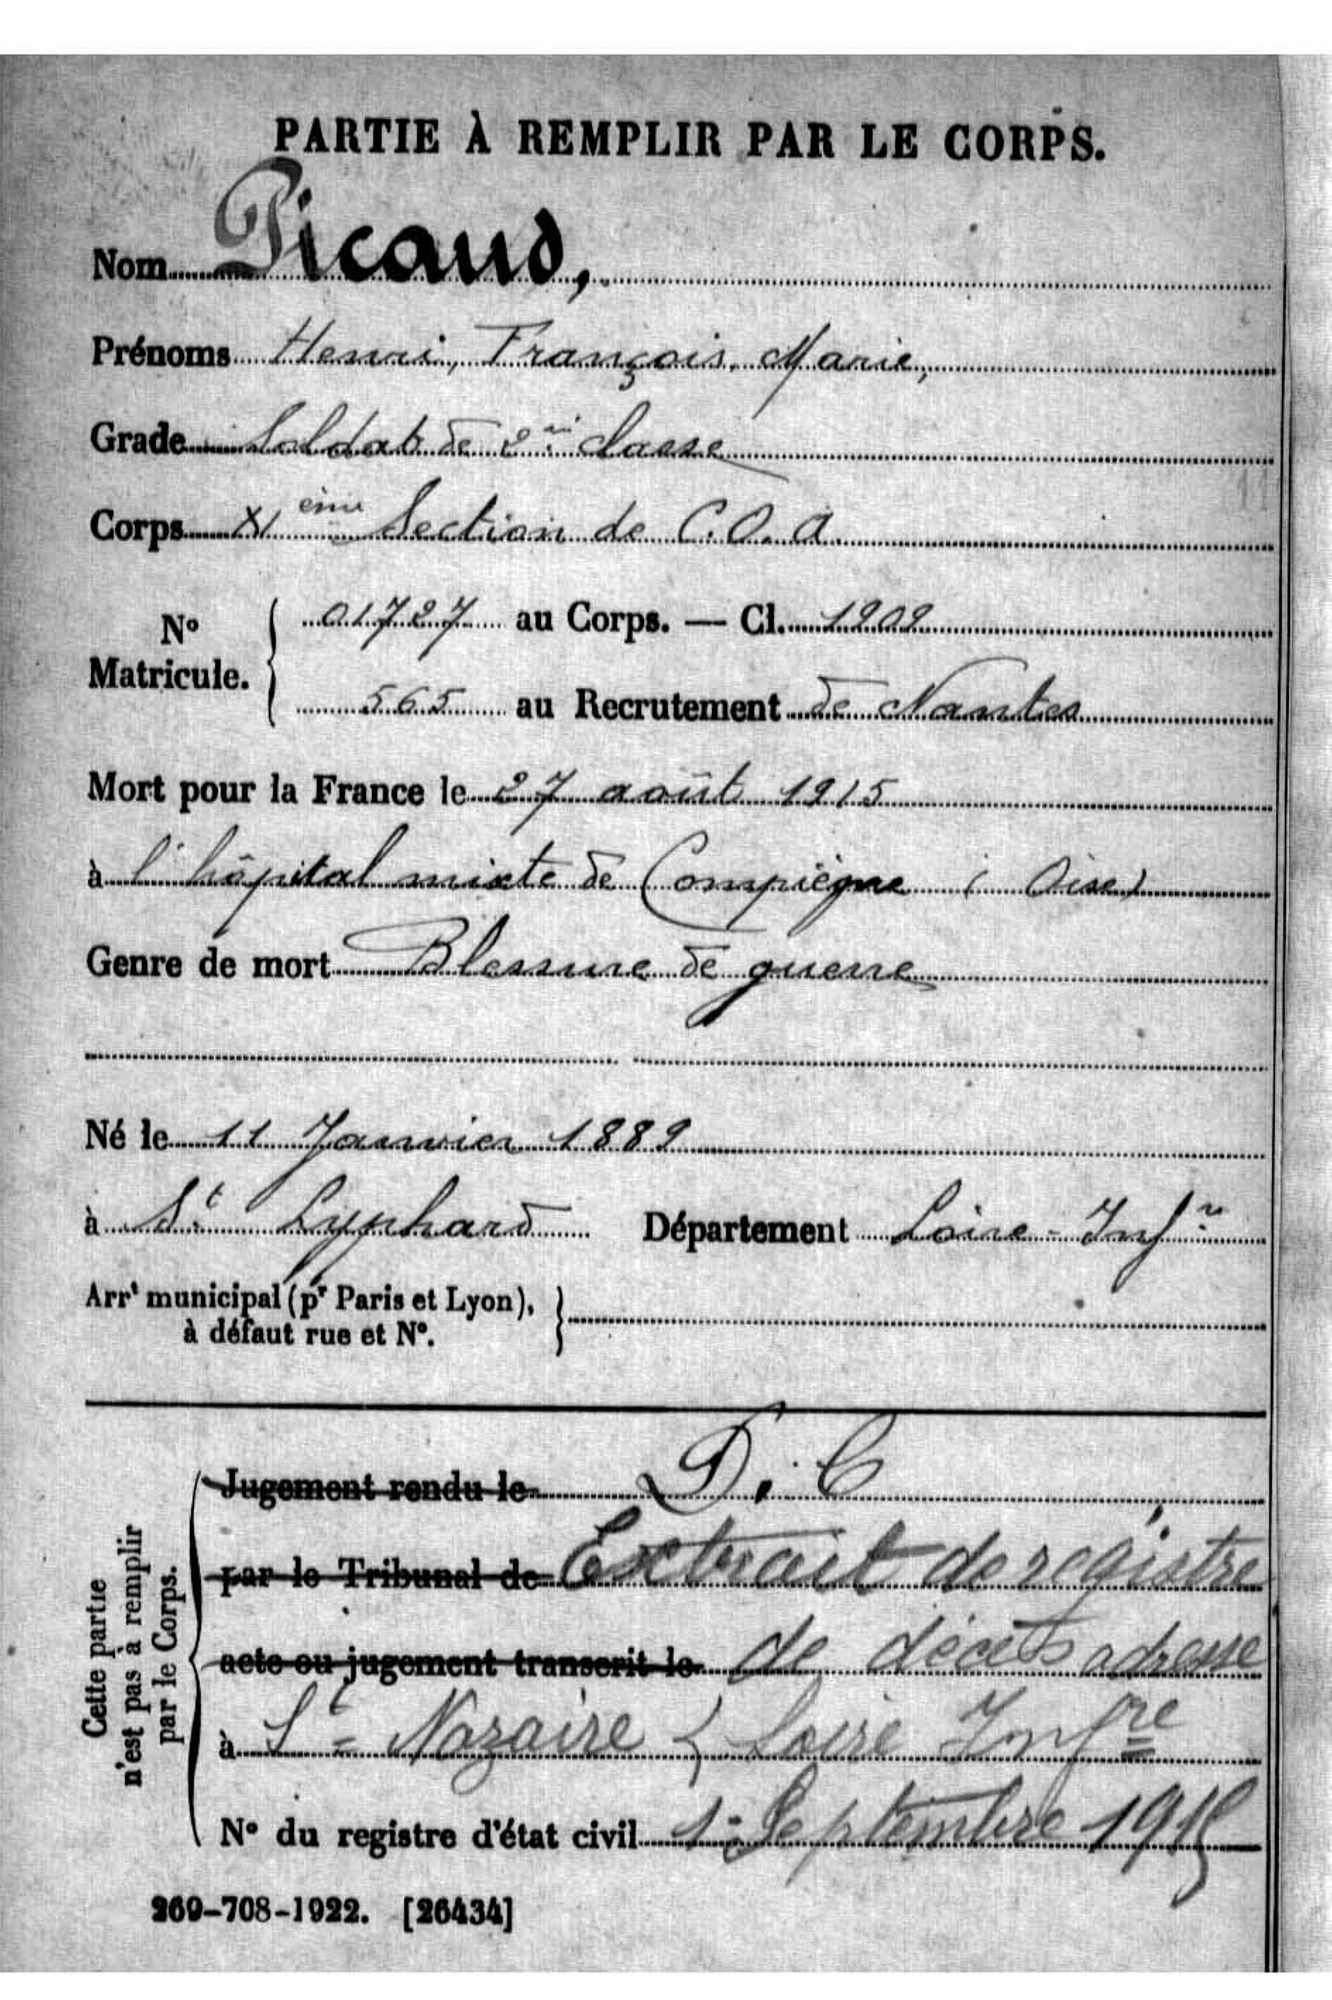 PARTIE À REMPLIR PAR LE CORPS.
Nom Picaud,
Prénoms Henri, François, Marie,
Grade Soldat de 2e classe
Corps XI ème Section de C.O.A.
N° Matricule. 01727 au Corps. — Cl. 1909
565 au Recrutement de Nantes
Mort pour la France le 27 août 1915
à l'hôpital mixte de Compiègne (Oise)
Genre de mort Blessure de guerre
Né le 11 Janvier 1889
à St Lyphard Département Loire-Infre
Arrt municipal (pr Paris et Lyon), à défaut rue et N°.
Cette partie n'est pas à remplir par le Corps.
Jugement rendu le D.C
par le Tribunal de Extrait de registre
acte ou jugement transcrit le de décès adresse
à St Nazaire (Loire Infre
N° du registre d'état civil 1 Septembre 1915
269-708-1922. [26434]